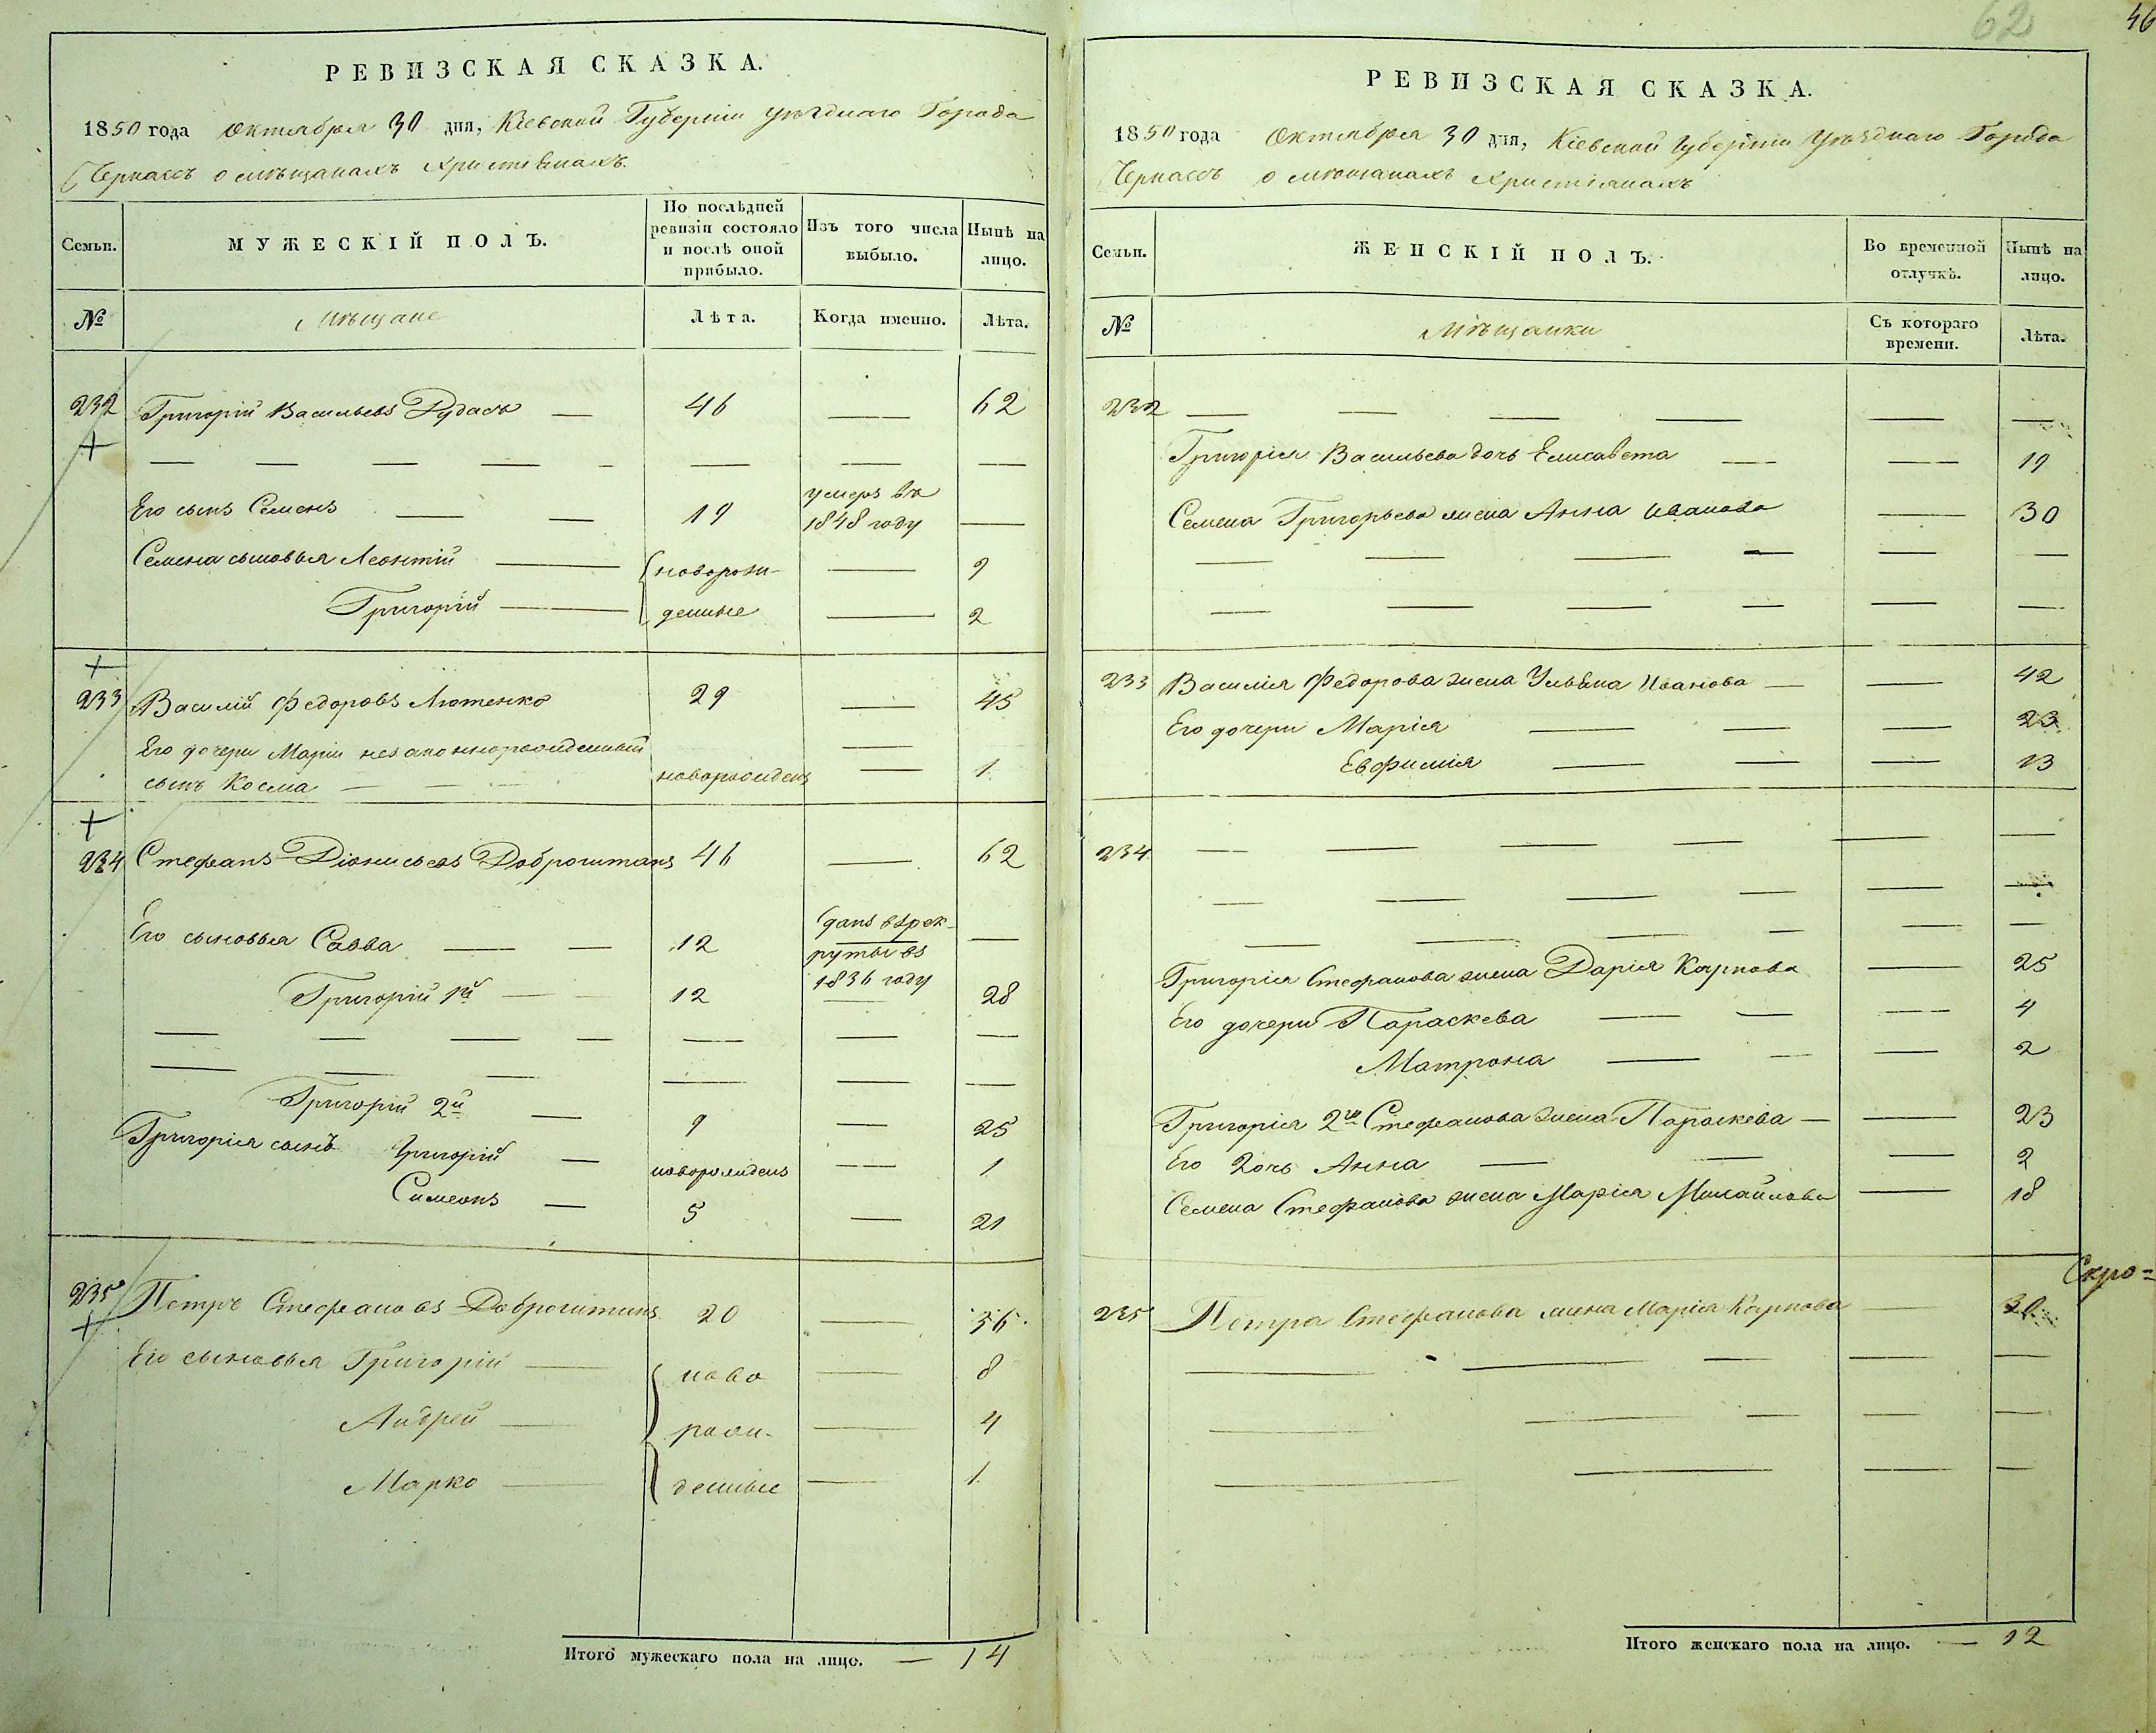 62
46
РЕВИЗСКАЯ СКАЗКА.
1850 года октября 30 дня, Кіевской Губерніи уѣзднаго Города
Черкасъ о мѣщанахъ христіянахъ.
Семьи.
МУЖЕСКІЙ ПОЛЪ.
По послѣдней ревизіи состояло и послѣ оной прибыло.
Изъ того числа выбыло.
Нынѣ на лицо.
№
Мѣщане
Лѣта.
Когда именно.
Лѣта.
232 Григорій Васильевъ Рудась — 46 — 62
+ — — — — — — — —
Его сынъ Семенъ — — 19 умеръ въ 1848 году —
Семена сыновья Леонтій — новорож- — 9
Григорій — денные — 2
+
233 Василій Федоровъ Лютенко 29 — 45
Его дочери Маріи незаконнорожденный —
сынъ Косма — — — новорожденъ — 1
+
234 Стефанъ Діонисьевъ Доброштанъ 46 — 62
Его сыновья Савва — — 12 Сданъ въ рек-
руты въ
1836 году —
Григорій 1й — — 12 — 28
— — — — — — —
— — — — — —
Григорій 2й — 9 — 25
Григорія сынъ Григорій — новорожденъ — — 1
Симеонъ — 5 — 21
235 Петръ Стефановъ Доброштанъ 20 — 36
+
Его сыновья Григорій — ново — 8
Андрей — рож- — 4
Марко — денные — 1
Итого мужескаго пола на лицо. — 14
РЕВИЗСКАЯ СКАЗКА.
1850 года Октября 30 дня, Кіевской Губерніи Уѣзднаго Города
Черкасъ о мѣщанахъ христіянахъ
Семьи.
ЖЕНСКІЙ ПОЛЪ.
Во временной отлучкѣ.
Нынѣ на лицо.
№
Мѣщанки
Съ котораго времени.
Лѣта.
232 — — — — — —
Григорія Васильева дочь Елисавета — — 19
Семена Григорьева жена Анна Иванова — 30
— — — — — —
— — — — — —
233 Василія Федорова жена Ульяна Иванова — — 42
Его дочери Марія — — — 23
Евфимія — — — 13
234 — — — — — —
— — — — — —
— — — — — —
Григорія Стефанова жена Дарія Карпова — 25
Его дочери Параскева — — — 4
Матрона — — — 2
Григорія 2го Стефанова жена Параскева — — 23
Его дочь Анна — — — 2
Семена Стефанова жена Марія Михайлова — 18
Скрѣ=
235 Петра Стефанова жена Марія Карпова — 30
— — — — —
— — — — —
— — — —
Итого женскаго пола на лицо. — 12